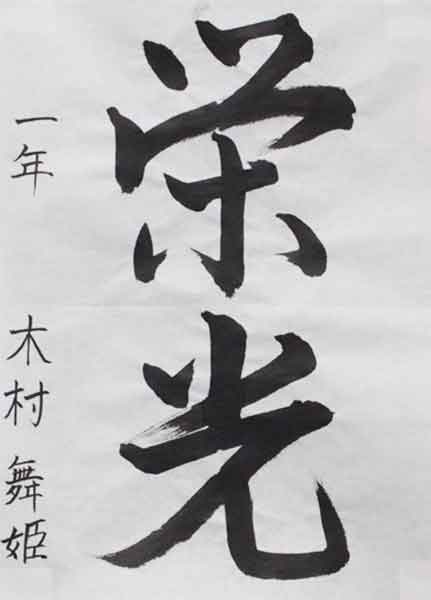 栄光
一年 木村舞姫